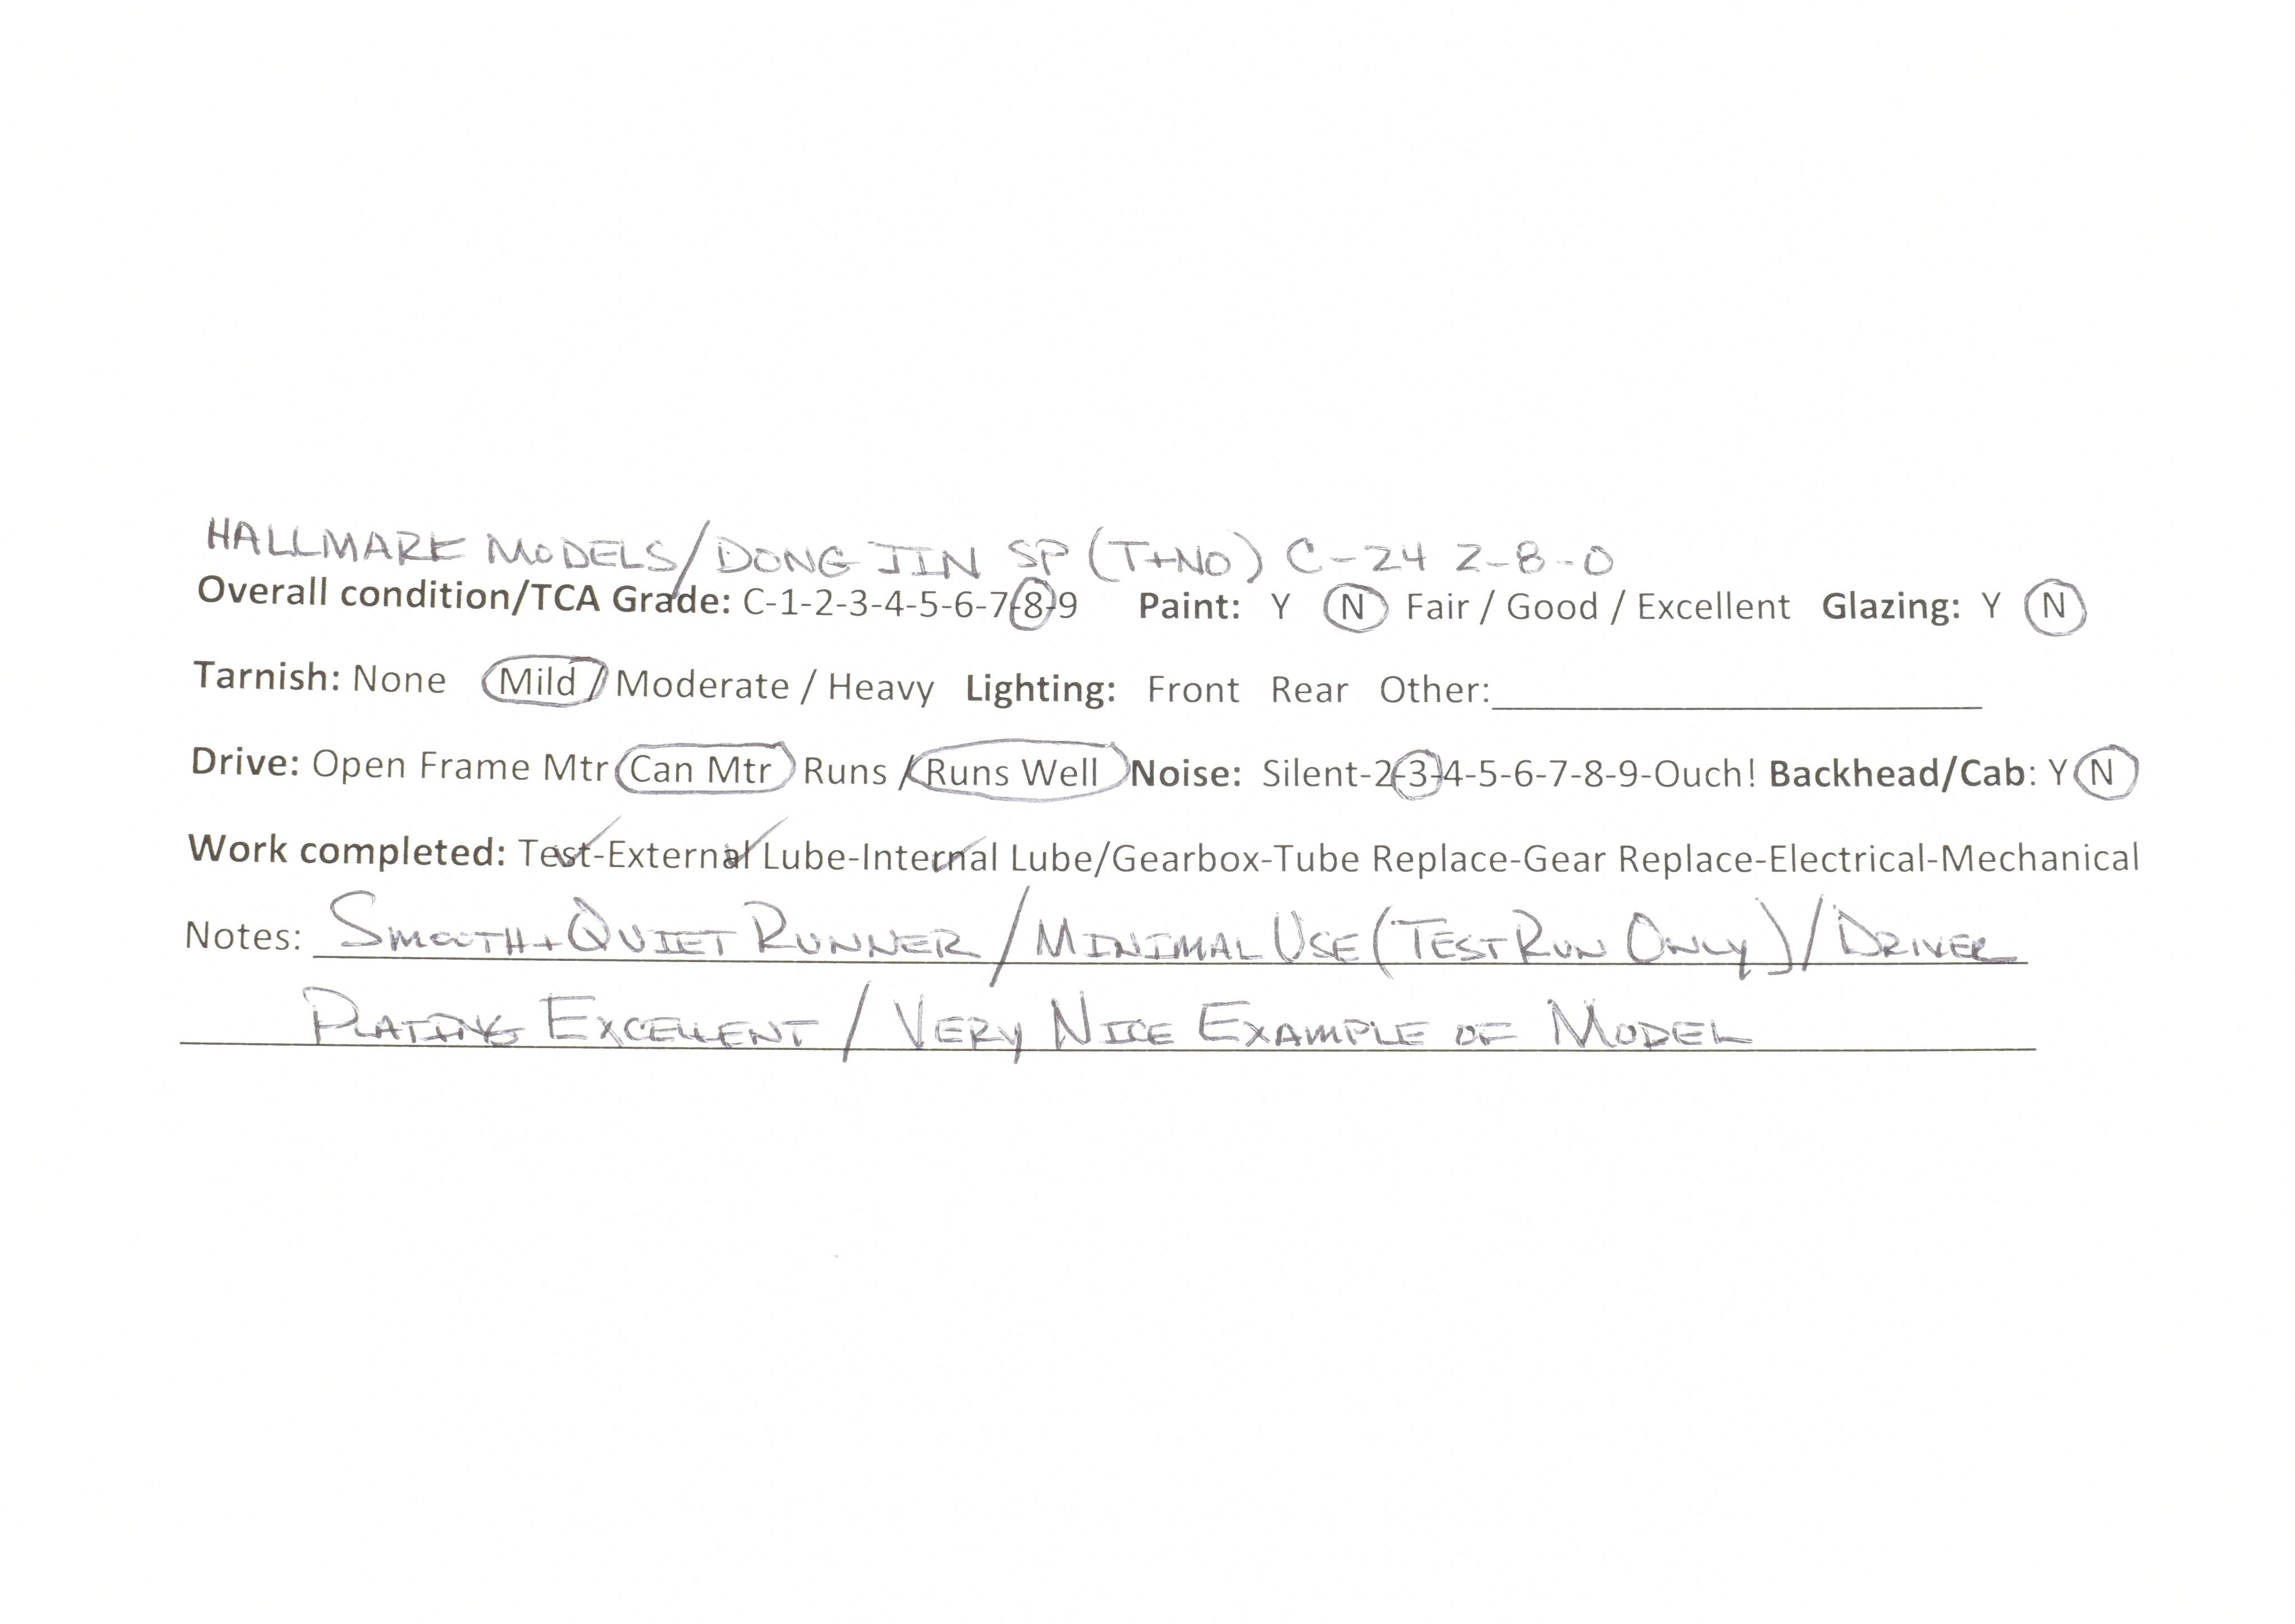 HALLMARK MODELS/DONG JIN SP (T+NO) C-24 2-8-0
Overall condition/TCA Grade: C-1-2-3-4-5-6-7-8-9 Paint: Y N Fair / Good / Excellent Glazing: Y N
Tarnish: None Mild / Moderate / Heavy Lighting: Front Rear Other:
Drive: Open Frame Mtr Can Mtr Runs / Runs Well Noise: Silent-2-3-4-5-6-7-8-9-Ouch! Backhead/Cab: Y N
Work completed: Test-External Lube-Internal Lube/Gearbox-Tube Replace-Gear Replace-Electrical-Mechanical
Notes: SMOOTH + QUIET RUNNER / MINIMAL USE (TEST RUN ONLY) / DRIVER
PLATING EXCELLENT / VERY NICE EXAMPLE OF MODEL